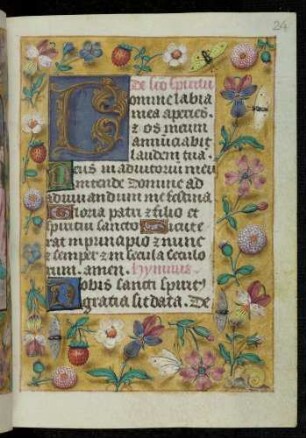 24
De sco spiritu
Domine labia
mea aperies.
& os meum
annuciabit
laudem tua.
Deus in adiutorium meu
intende Domine ad
adiuuandum me festina
Gloria patri & filio et
spiritui sancto Sicut e
rat in principio & nunc
& semper & in secula seculo
rum. amen. hymnus
Nobis sancti spirit9
gratia sit data. De